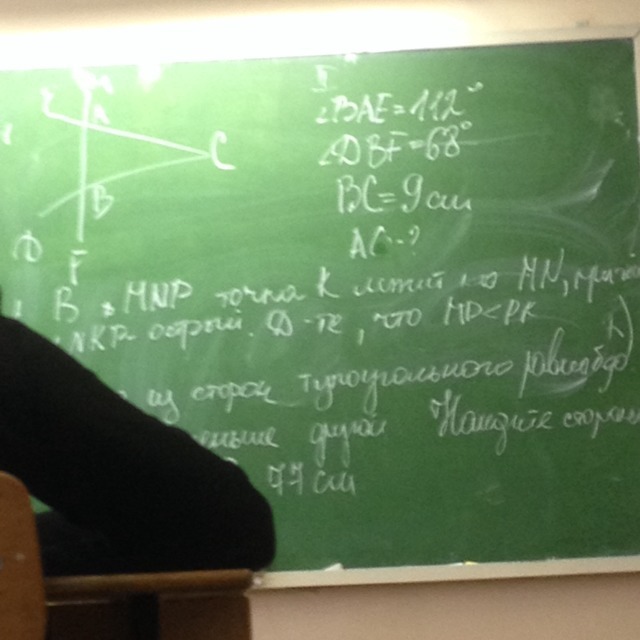 A
C
B
D
F
I
∠BAE=112°
∠DBF=68°
BC=9 см
AC-?
В MNP точка K лежит на MN, причём
NKP острый. Д-те, что MP<PK
из сторон тупоугольного равнобед
меньше другой Найдите стороны
77 см